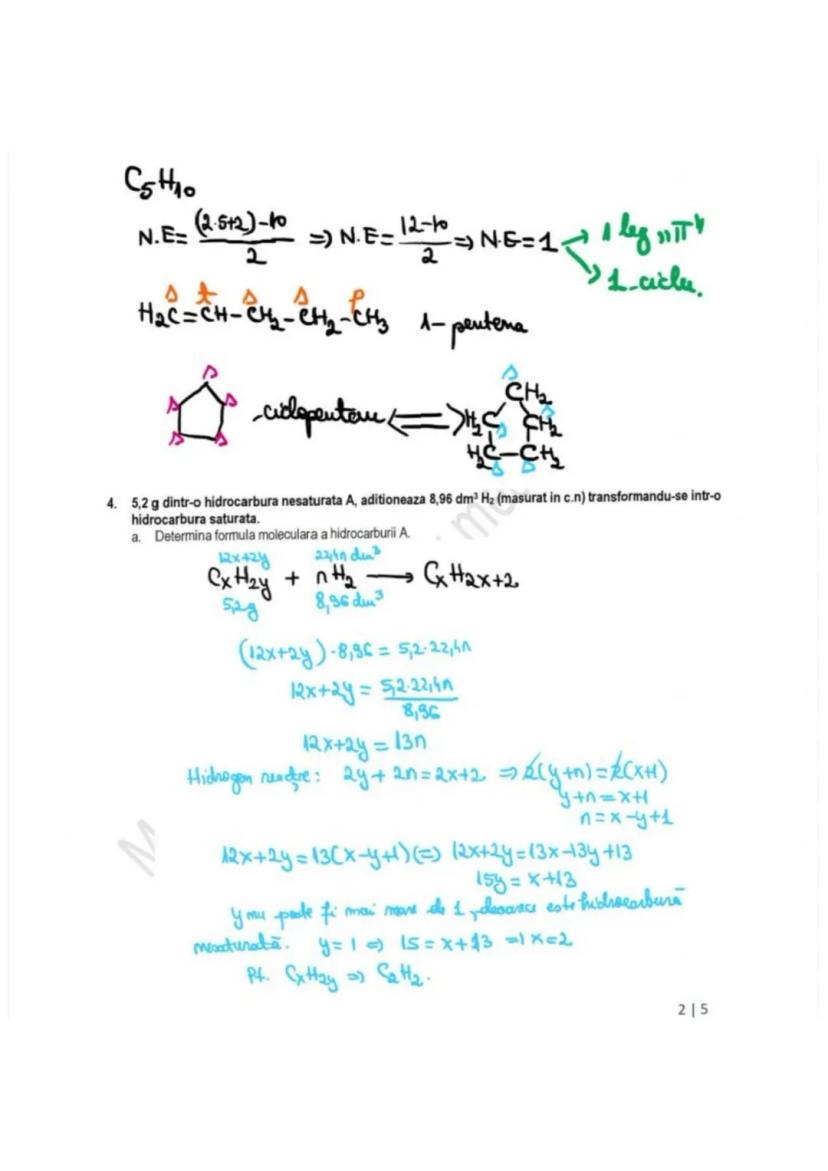 C5H10
N.E= (2·5+2)-10 / 2 => N.E= 12-10 / 2 => N.E=1 → 1 leg „π"
→ 1 ciclu.
s t s s p
H2C=CH-CH2-CH2-CH3 1-pentena
s
s s ciclopentan <=> s CH2
H2C s CH2 s
s s H2C-CH2
s s
4. 5,2 g dintr-o hidrocarbura nesaturata A, aditioneaza 8,96 dm³ H2 (masurat in c.n) transformandu-se intr-o
hidrocarbura saturata.
a. Determina formula moleculara a hidrocarburii A.
12x+2y 22,4n dm³
CxH2y + nH2 → CxH2x+2
5,2g 8,96 dm³
(12x+2y)·8,96 = 5,2·22,4n
12x+2y = 5,2·22,4n / 8,96
12x+2y = 13n
Hidrogen : 2y+2n=2x+2 => 2(y+n)=2(x+1)
y+n=x+1
n=x-y+1
12x+2y=13(x-y+1) (=) 12x+2y=13x-13y+13
15y=x+13
y nu poate fi mai mare de 1, deoarece este hidrocarbură
nesaturată. y=1 => 15=x+13 => x=2
Pt. CxH2y => C2H2.
2 | 5